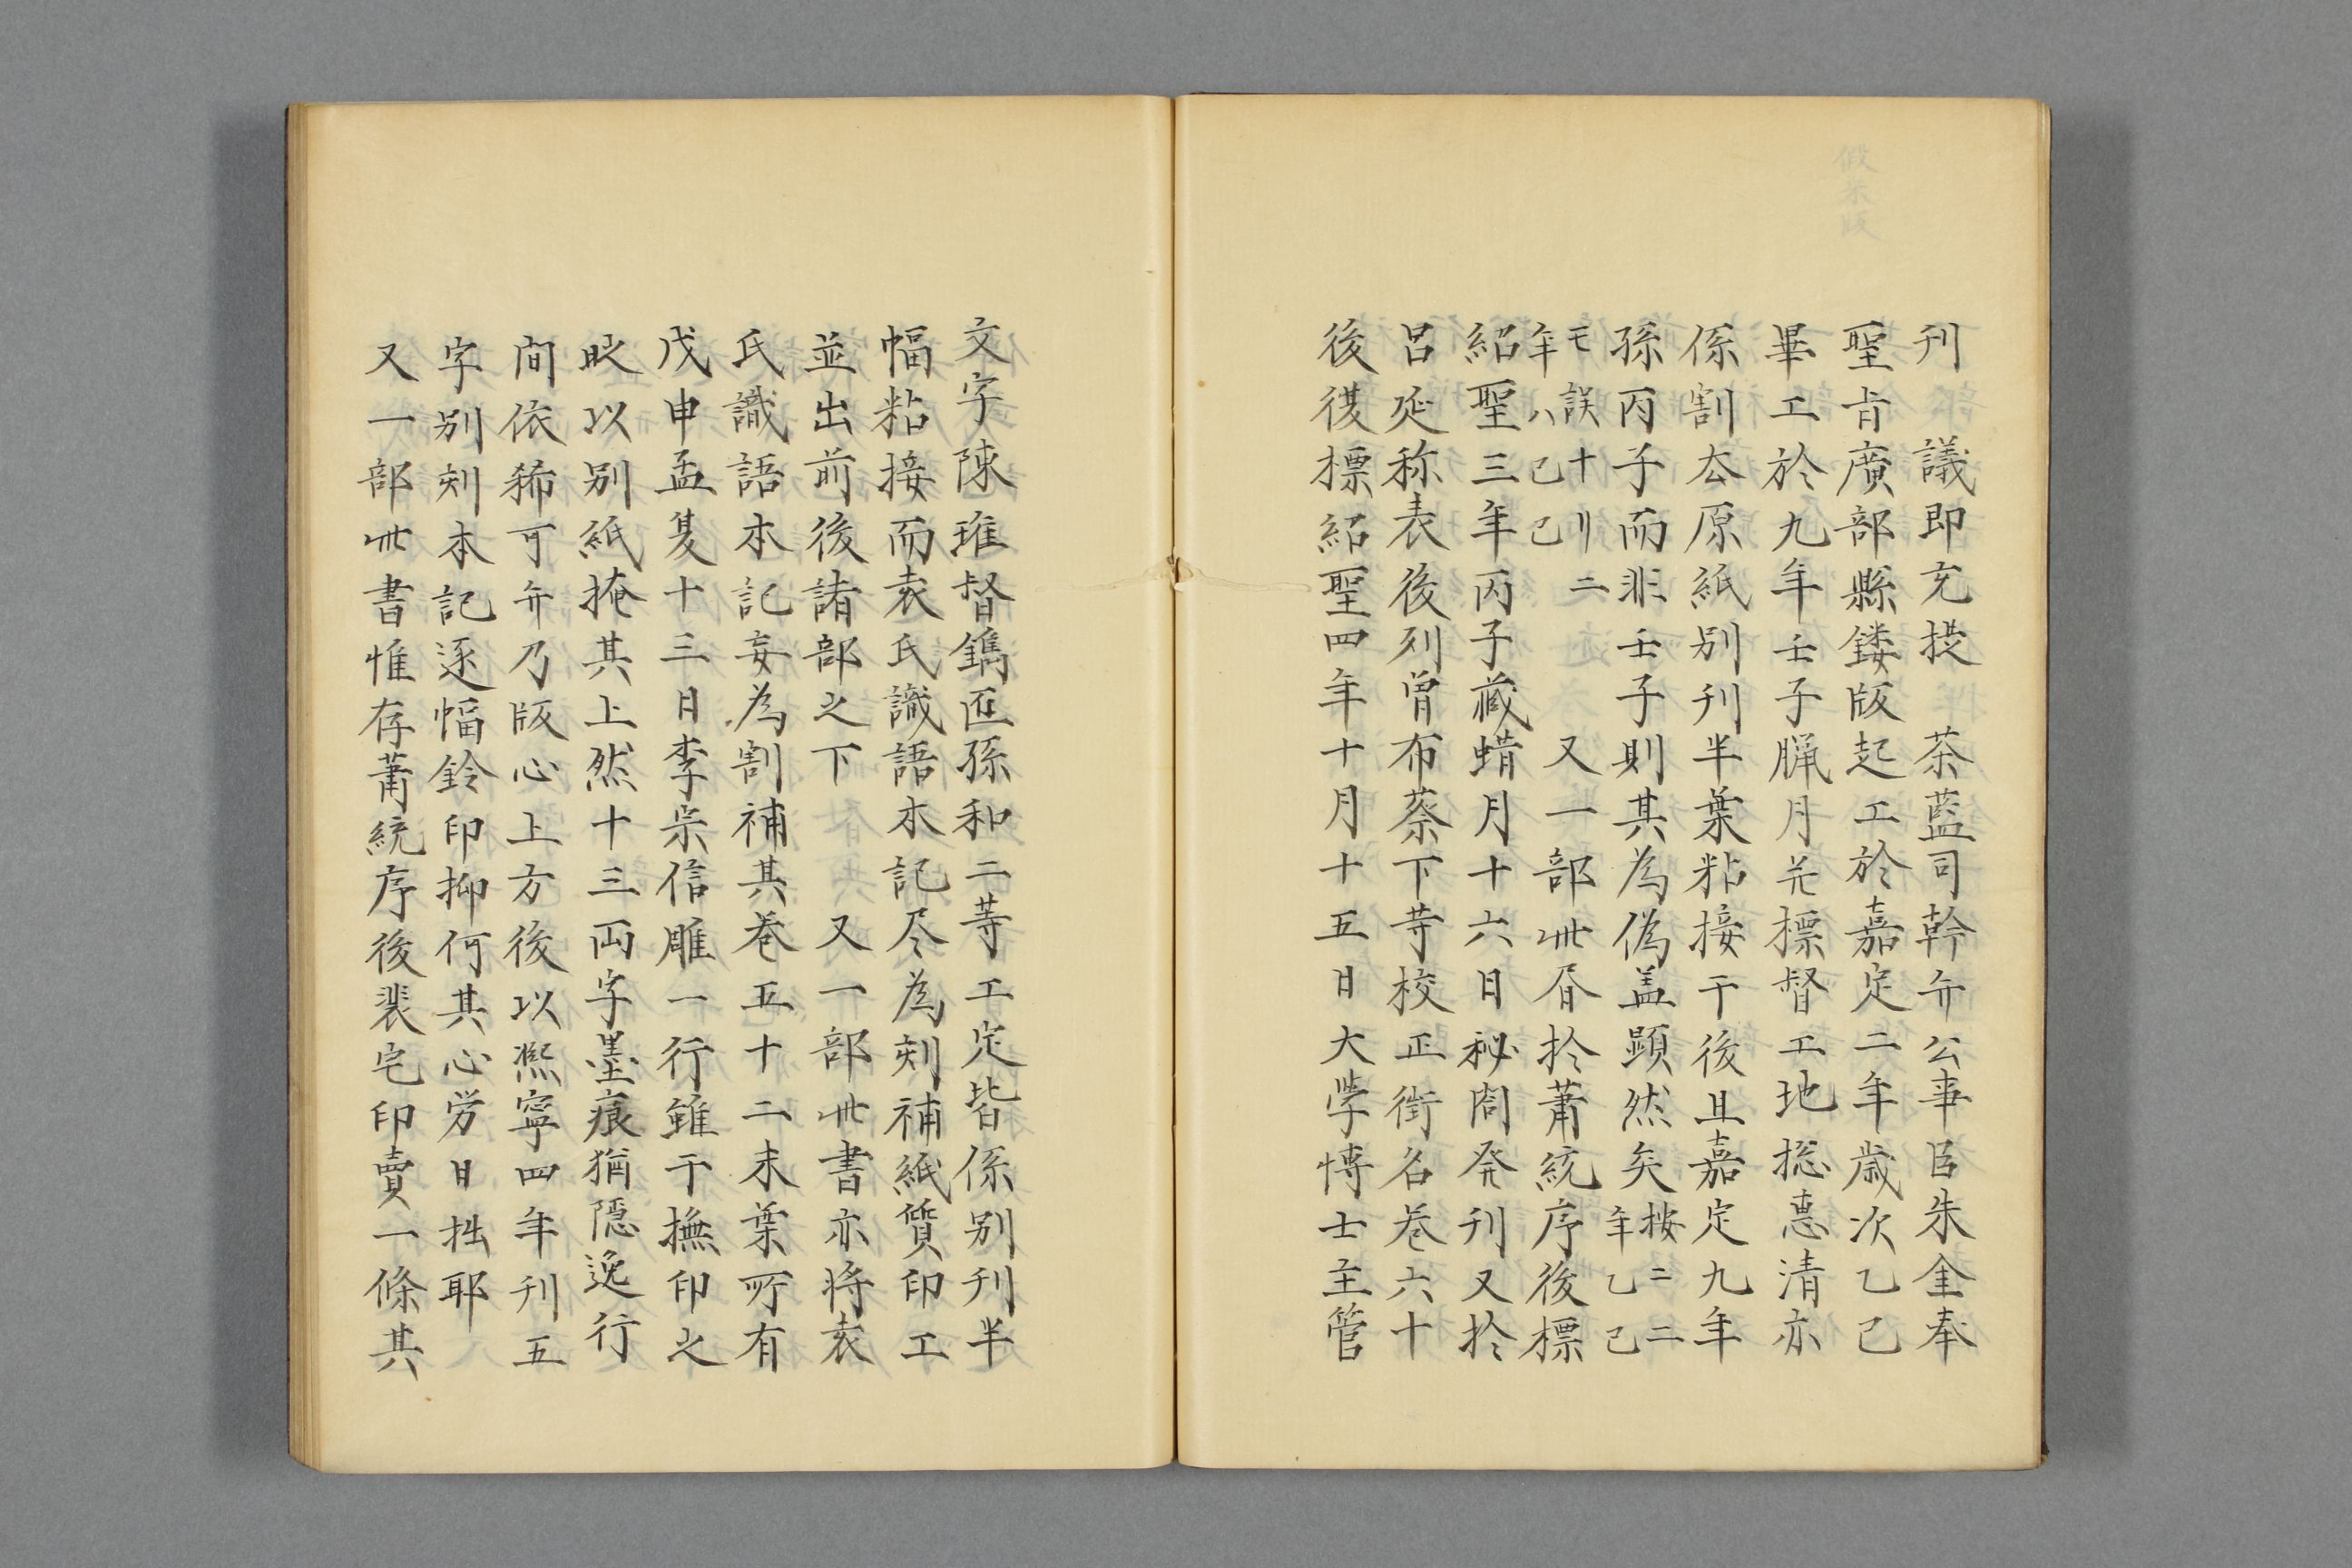 刊　議即充提　茶藍司幹弁公事臣朱奎奉
聖肯廣部縣鏤版起工於嘉定二年歳次乙己
畢工於九年壬子臘月並標督工地総悳清亦
係割厺原紙别刊半葉粘接干後且嘉定九年
孫丙子而非壬子則其為偽盖顕然矣按二二
年乙己
モ誤十刂二
年八己己　又一部卌㫺扵莆統序後標
紹聖三年丙子蔵蜡月十六日秘閣発刊又扵
呂延称表後列曽布蔡下䓁校正衘名巻六十
後複標紹聖四年十月十五日大学博士主管
文字陳琟督鐫匠孫和二䓁工定皆係别刊半
幅粘接而袁氏識語木記尽為刻補紙質印工
並出前後諸部之下　又一部卌書亦将袁
氏識語本記妄為割補其巻五十二末葉所有
戊申孟夏十三日李宗信雕一行雖干撫印之
时以别紙掩其上然十三両字墨痕猶隠逸行
間依稀可弁乃版心上方後以熈寧四年刊五
字别刻本記逐幅鈴印抑何其心労日拙耶
又一部卌書惟存莆統序後裴宅印賣一條其